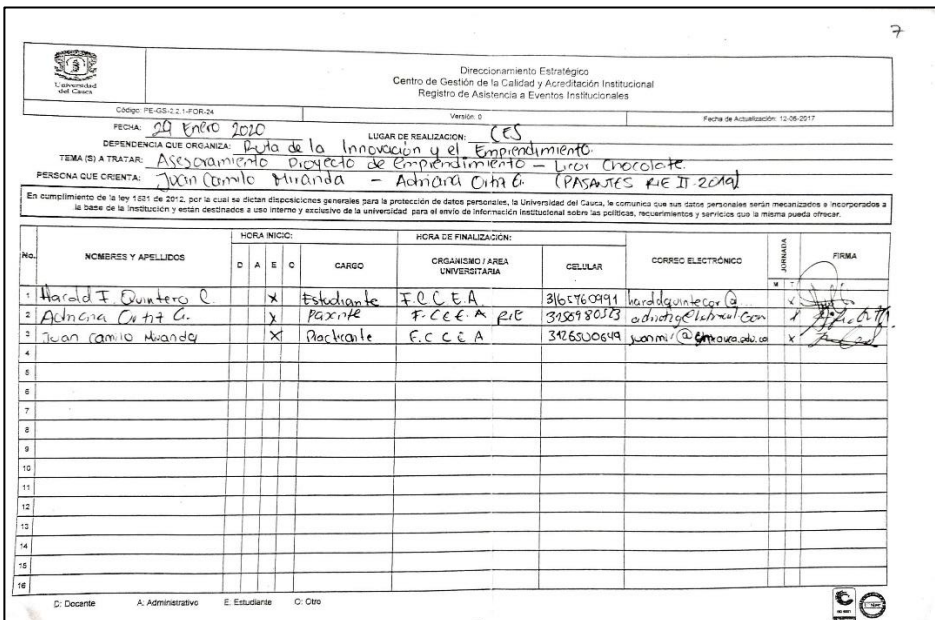 7
Universidad
del Cauca
Direccionamiento Estratégico
Centro de Gestión de la Calidad y Acreditación Institucional
Registro de Asistencia a Eventos Institucionales
Código: PE-GS-2.2.1-FOR-24 Versión: 0 Fecha de Actualización: 12-06-2017
FECHA: 29 Enero 2020 LUGAR DE REALIZACION: CES
DEPENDENCIA QUE ORGANIZA: Ruta de la Innovación y el Emprendimiento.
TEMA (S) A TRATAR: Asesoramiento Proyecto de Emprendimiento - Licor Chocolate.
PERSONA QUE ORIENTA: Juan Camilo Miranda - Adriana Ortiz G. (PASANTES RIE II-2019)
En cumplimiento de la ley 1581 de 2012, por la cual se dictan disposiciones generales para la protección de datos personales, la Universidad del Cauca, le comunica que sus datos personales serán mecanizados e incorporados a
la base de la Institución y están destinados a uso interno y exclusivo de la universidad para el envío de información institucional sobre las políticas, requerimientos y servicios que la misma pueda ofrecer.
HORA INICIO: HORA DE FINALIZACIÓN:
No. NOMBRES Y APELLIDOS D A E O CARGO ORGANISMO / AREA UNIVERSITARIA CELULAR CORREO ELECTRÓNICO JORNADA M T FIRMA
1 Harold F. Quintero C. X Estudiante F.C.C.E.A. 3165760991 x
2 Adriana Ortiz G. x F.C.C.E.A RIE x
3 Juan Camilo Miranda X Practicante F.C.C.E.A 3126500649 x
4
5
6
7
8
9
10
11
12
13
14
15
16
D: Docente A: Administrativo E: Estudiante O: Otro